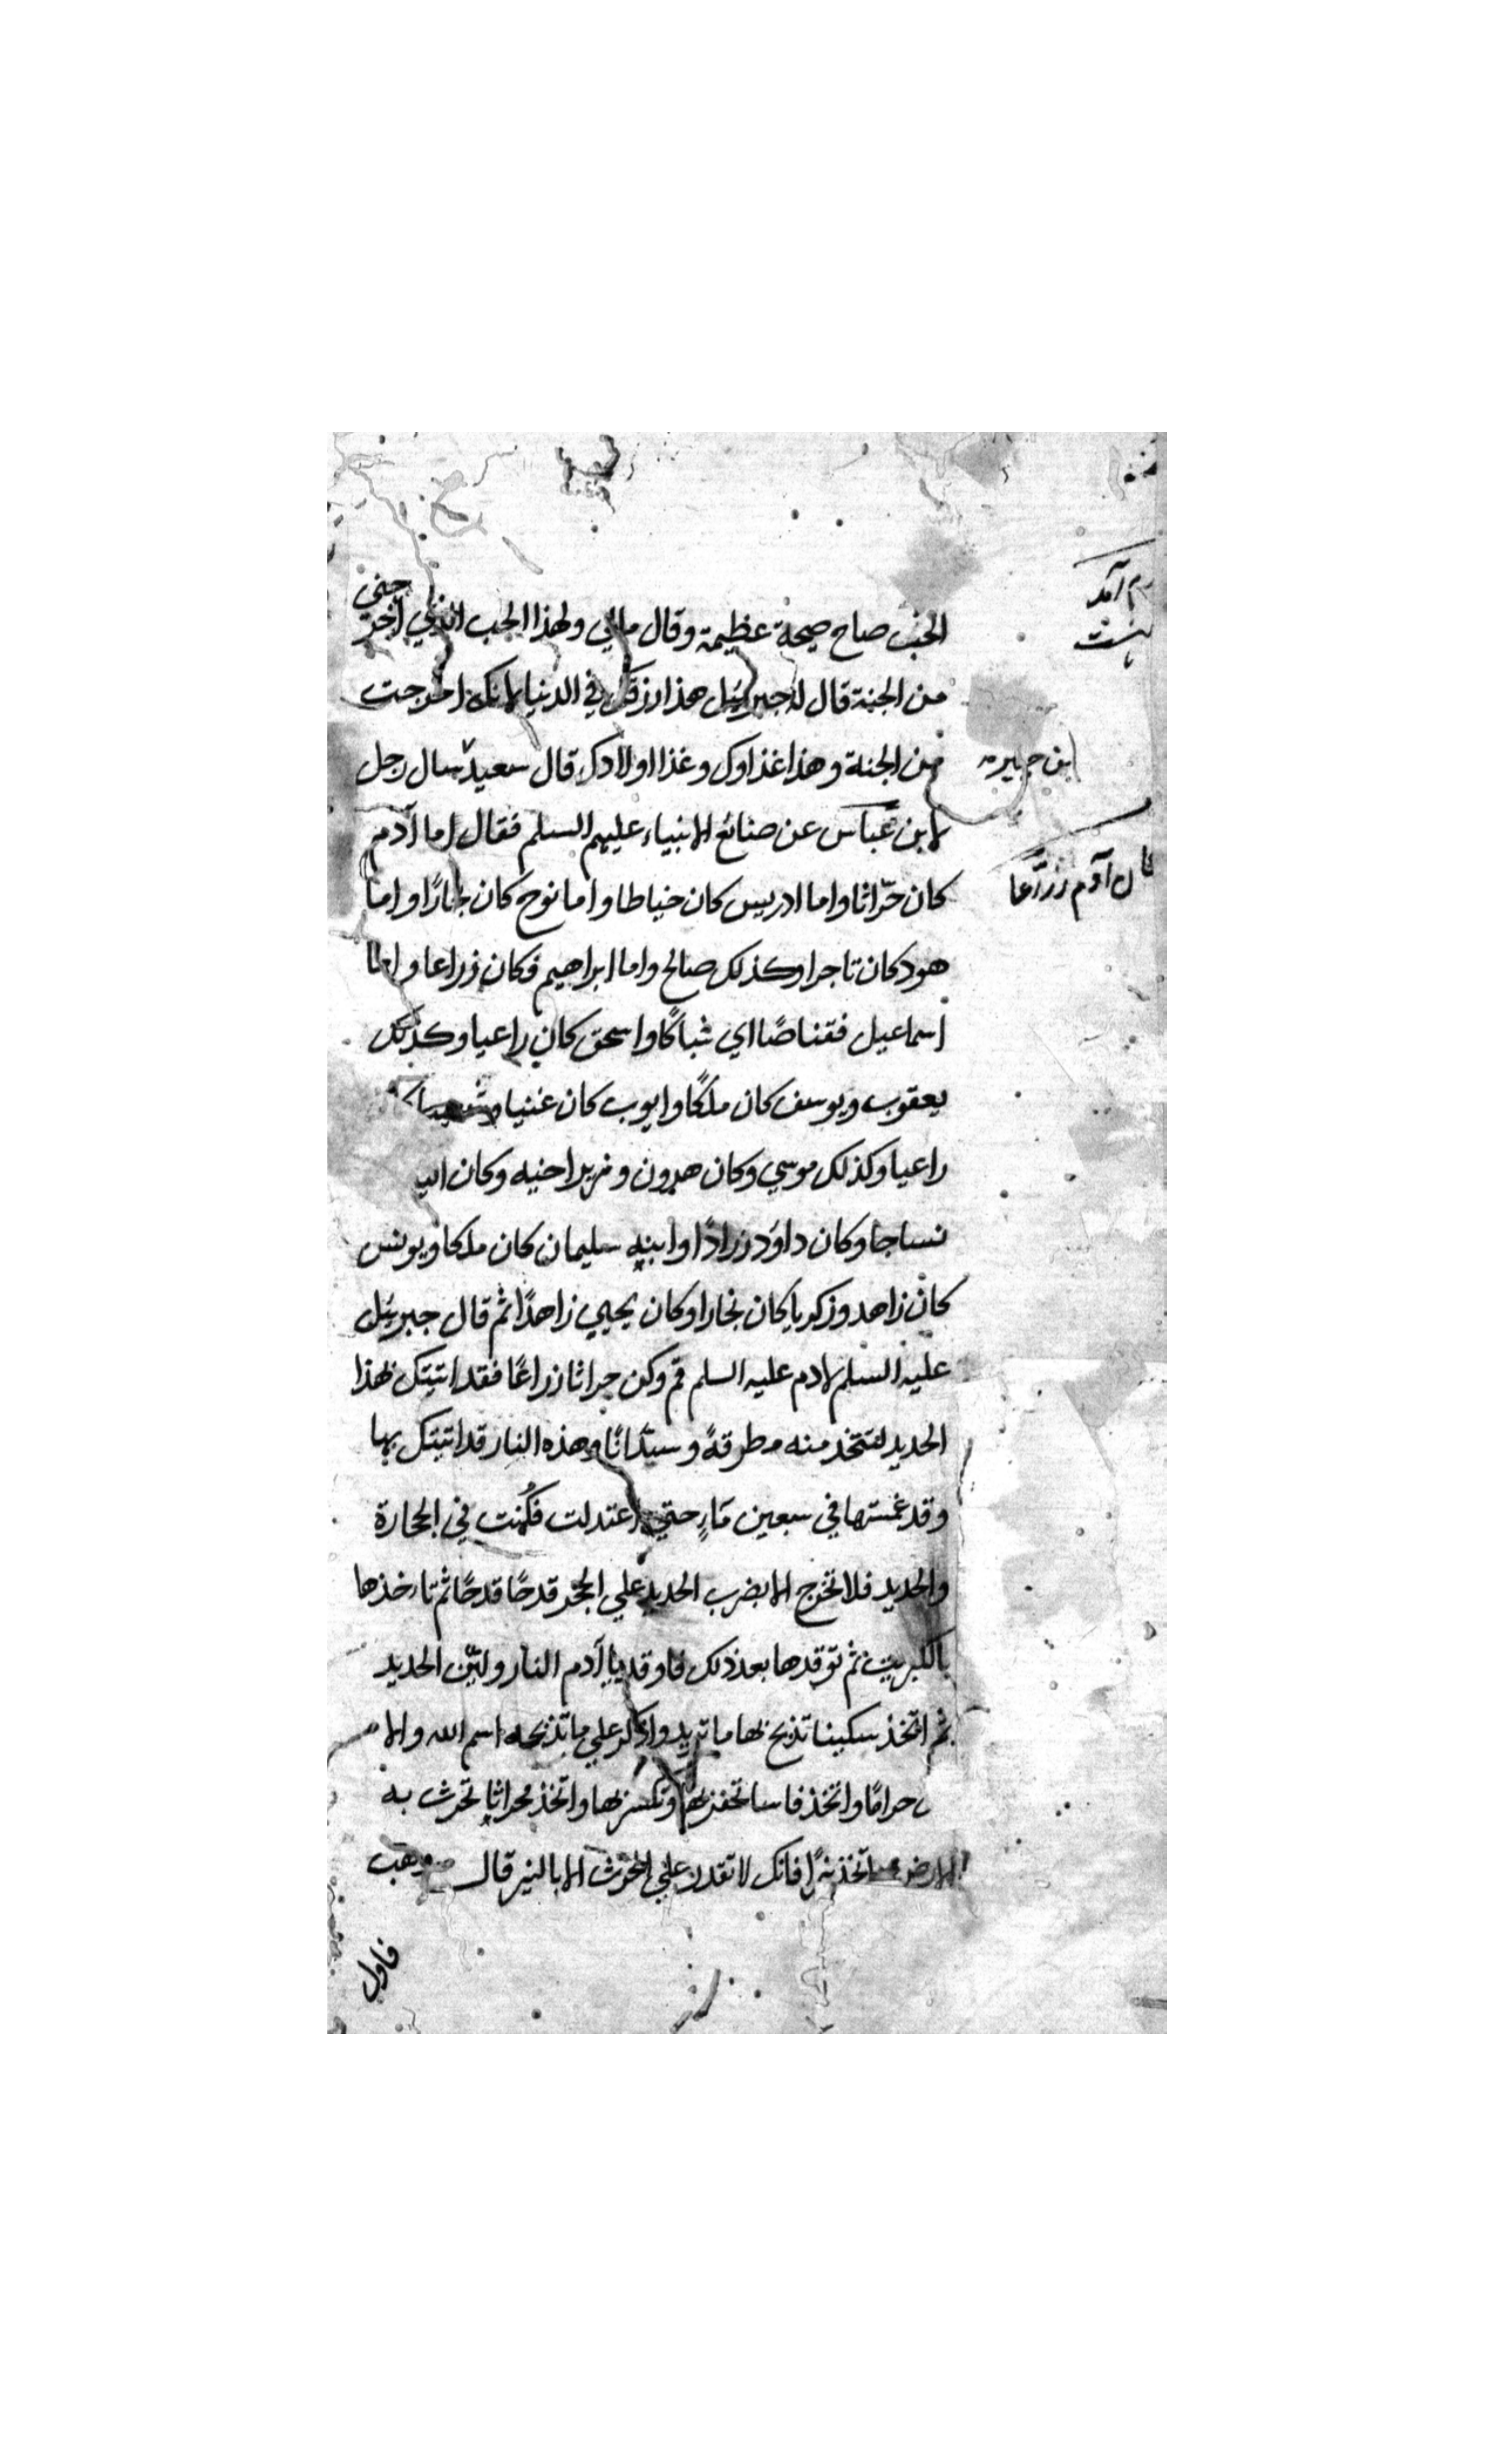 الحب صاح صيحة عظيمة وقال مالي ولهذا الحب الذي اخرجني
من الجنة قال له جبرئيل هذا رزقك في الدنيا لانك اخرجت
من الجنة وهذا غذاوك وغذا اولادك قال سعيد سال رجل
ابن جبير
لابن عباس عن صنائع الانبياء عليهم السلم فقال اما آدم
كان حرّاثا واما ادريس كان خياطا واما نوح كان نجارًا واما
هود كان تاجرا وكذلك صالح واما ابراهيم فكان زراعا واما
اسماعيل فقناصًا اي شباكًا واسحق كان راعيا وكذلك
يعقوب ويوسف كان ملكًا وايوب كان غنيا
راعيا وكذلك موسي وكان هرون وزيرا خيه وكان
نساجا وكان داود زرادًا وابنه سليمان كان ملكا ويونس
كان زاهد وزكريا كان نجارا وكان يحيي زاهدًا ثم قال جبرئيل
عليه السلم لادم عليه السلم قم وكن حراثا زراعًا فقد اتيتك بهذا
الحديد لتتخد منه مطرقةً وسندانًا وهذه النار قد اتيتك بها
وقد غمستها في سبعين مَارٍ حتي اعتدلت فكُمنت في الحجارة
والحديد فلا تخرج الا بضرب الحديد علي الحجر قدحًا قدحًا ثم تاخذها
بالكبريت ثم توقدها بعد ذلك فاوقد يا آدم النار وليّن الحديد
ثم اتخذ سكينا تذبح بها ما تريد واذكر علي ما تذبحه اسم الله والا
حرامًا واتخذ فاسا تحفر بها وتكسر بها واتخذ محراثا تحرث به
الارض واتخذ نيرًا فانك لا تقدر علي الحرث الا بالنير قال وهب
فاول